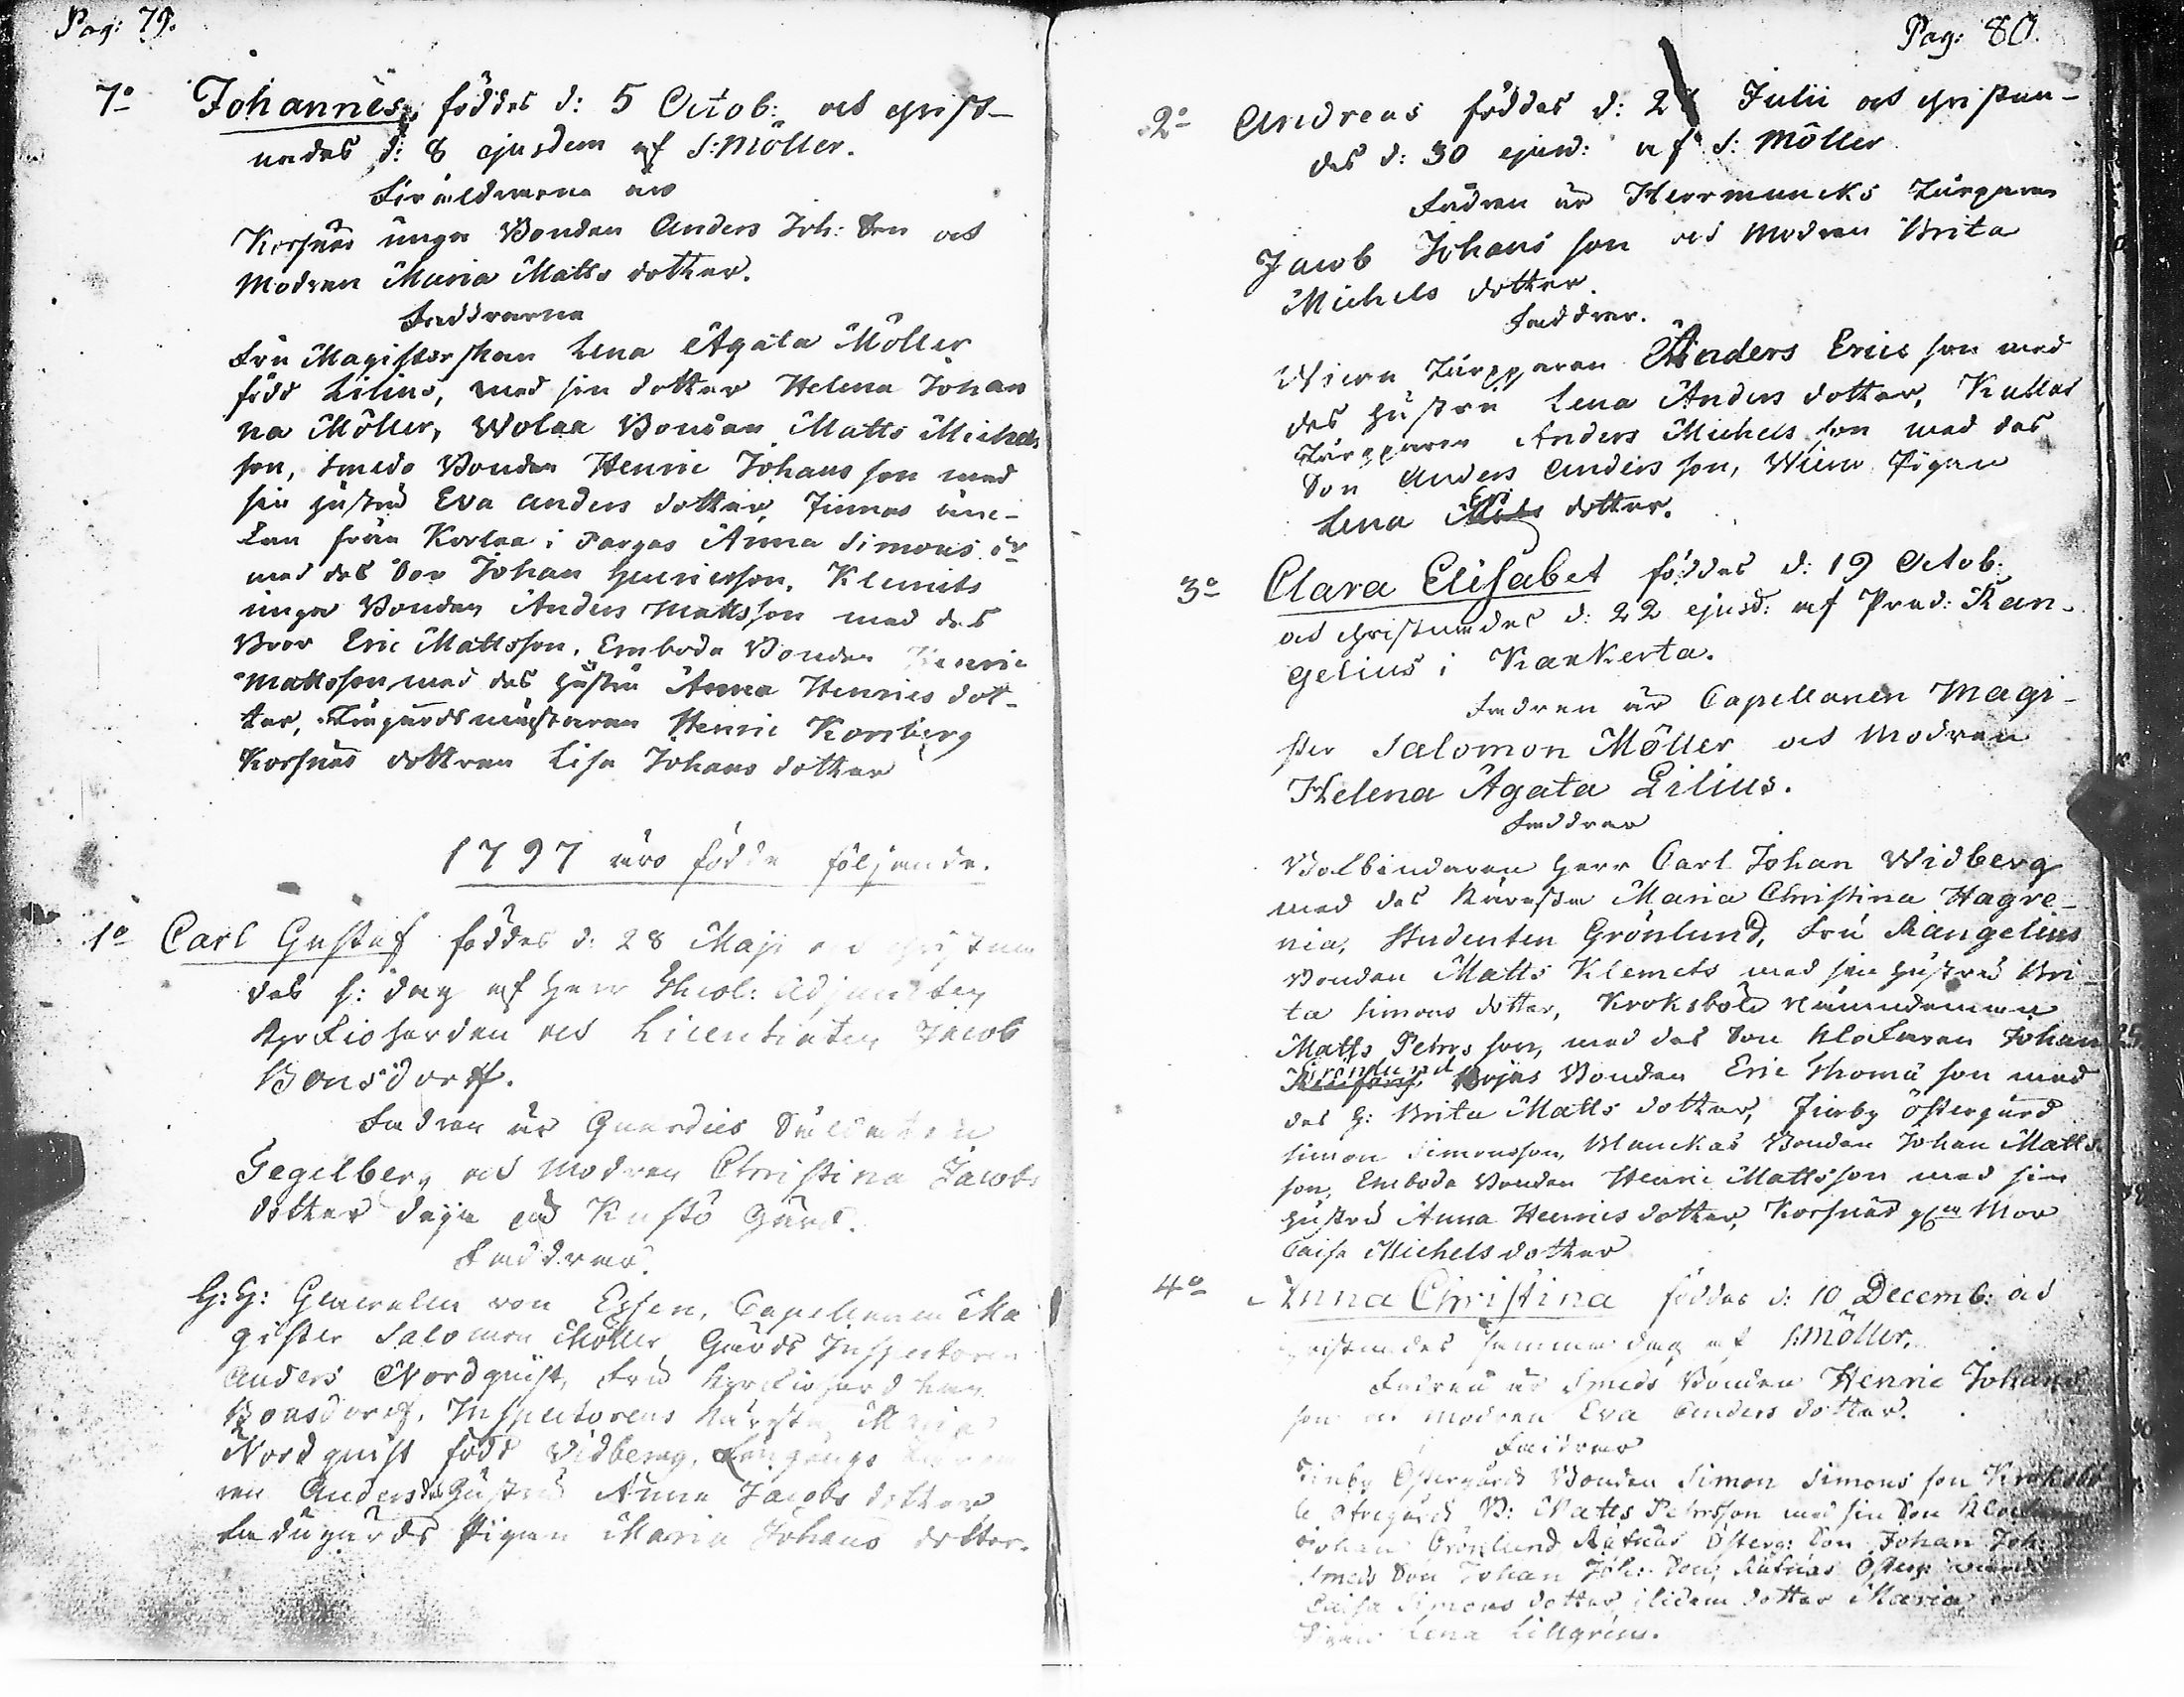 Pag: 79.
7o Johannes, föddes d: 5 Octob: och christ-
nades d: 8 ejusdem af S: Möller.
Föräldrarne äro
Korsnäs unga Bonden Anders Joh: Son och
Modren Maria Matts dotter.
Faddrarne
Fru Magisterskan Lena Agata Möller
född Lilius, med sin dotter Helena Johan
na Möller, Bonden Matts Michels
son, Smeds Bonden Henric Johans son med
sin hustru Eva Anders dotter, Finnas än-
kan från i Pargas Anna Simons dr
med des Son Johan Henricsson, Klemets
unga Bonden Anders Mattsson med des
Bror Eric Mattsson, Emboda Bonden Henric
Mattsson med des hustru Anna Henrics dot-
ter, Henric Korsberg
Korsnäs dottren Lisa Johans dotter
1797 äro födde följande.
1o Carl Gustaf föddes d: 28 Maji och christna
des s: dag af Herr Theol: Adjuncten
Kyrkioherden och Licentiaten Jacob
Bonsdorff.
Fadren är Guardies Soldaten
Segelberg och Modren Christina Jacobs
dotter deija på Kustö Gård.
Faddrar.
H: H: Generalen von Essen, Capellanen Ma
gister Salomon Möller, Gårds Inspectoren
Anders Nordquist, Fru Kyrkioherdskan
Bonsdorff, Inspectorens Käresta Maria
Nordquist född Vidberg,
ren Anders des Hustru Anna Jacobs dotter,
Ladugårds Pigan Maria Johans dotter.
Pag: 80.
2o Andreas föddes d: 2 Julii och christna-
des d: 30 ejusd: af S: Möller
Fadren är Herrmancks Torparen
Jacob Johans son och Modren Brita
Michels dotter.
Faddrar.
Torpparen Anders Erics son med
des hustru Lena Anders dotter, Kullas
Torpparen Anders Michels son med des
Son Anders Anders son, Pigan
Lena dotter.
3o Clara Elisabet föddes d: 19 Octob:
och christnades d: 22 ejusd: af Pred: Ran-
gelius i Karkerta.
Fadren är Capellanen Magi-
ster Salomon Möller och Modren
Helena Agata Lilius.
Faddrar
Bokbindaren Herr Carl Johan Widberg
med des Käresta Maria Christina Hagre-
nia, Studenten Grönlund, Fru Rangelius
Bonden Matts Klemets med sin hustru Bri-
ta Simons dotter, Kroksböle Nämndeman
Matts Petters son, med des Son Klockaren Johan
Grönlund, Böjas Bonden Eric Thomæ son med
des h: Brita Matts dotter, Finby Östergård
Simon Simonsson, Blanckas Bonden Johan Matts
son, Emboda Bonden Henric Mattsson med sin
hustru Anna Henrics dotter, Korsnäs Mor
Caisa Michels dotter
4o Anna Christina föddes d: 10 Decemb: och
christnades samma dag af S: Möller.
Fadren är Smeds Bonden Henric Johans
son och Modren Eva Anders dotter.
Faddrar
Finby Östergårds Bonden Simon Simons son Kroksbö-
le B: Matts Pehrsson med sin Son Klockaren
Johan Grönlund Österg: Son Johan Joh:
Smeds Son Johan Joh: Son, Österg:
Caisa Simons dotter, ibidem dotter Maria
Pigan Lena Lillgrens.